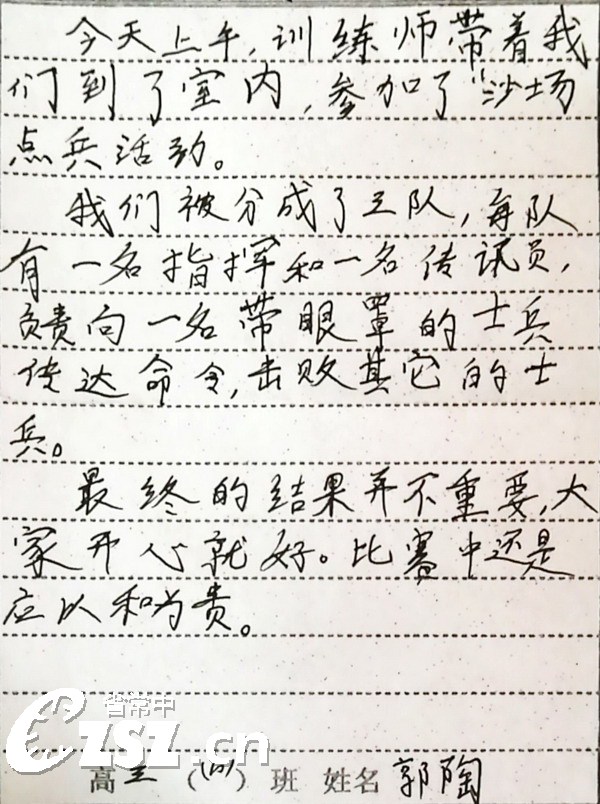 今天上午,训练师带着我
们到了室内,参加了“沙场
点兵活动。
我们被分成了三队,每队
有一名指挥和一名传讯员,
负责向一名带眼罩的士兵
传达命令,击败其它的士
兵。
最终的结果并不重要,大
家开心就好。比赛中还是
应以和为贵。
省常中
CZSZ.cn
高三(四)班 姓名 郭陶